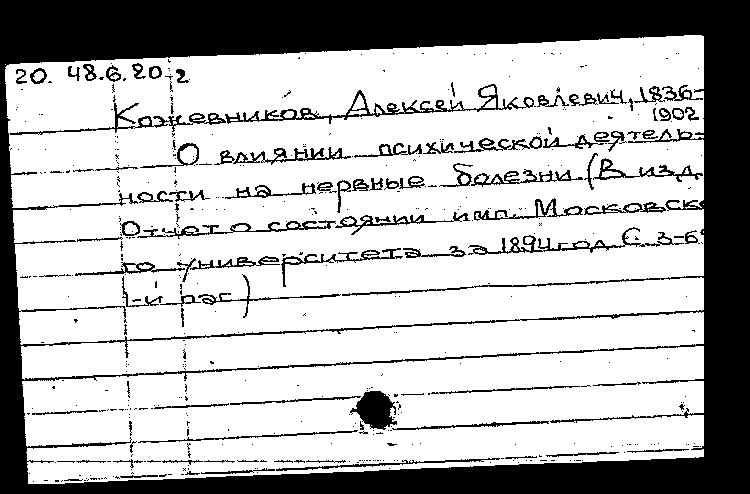 20. 48.6.20.2
Кожевников, Алексей Яковлевич, 1836-
1902
О влиянии психической деятель-
ности на нервные болезни. (В изд.
Отчет о состоянии имп. Московско
го университета за 1894 год С. 3-6
1-й паг)